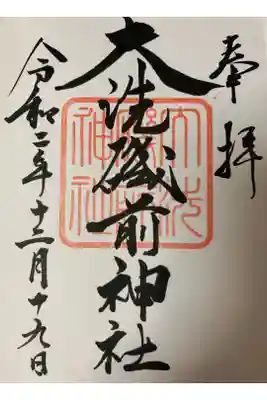 奉拝
大洗磯前神社
大洗
磯前
神社
令和二年十二月十九日